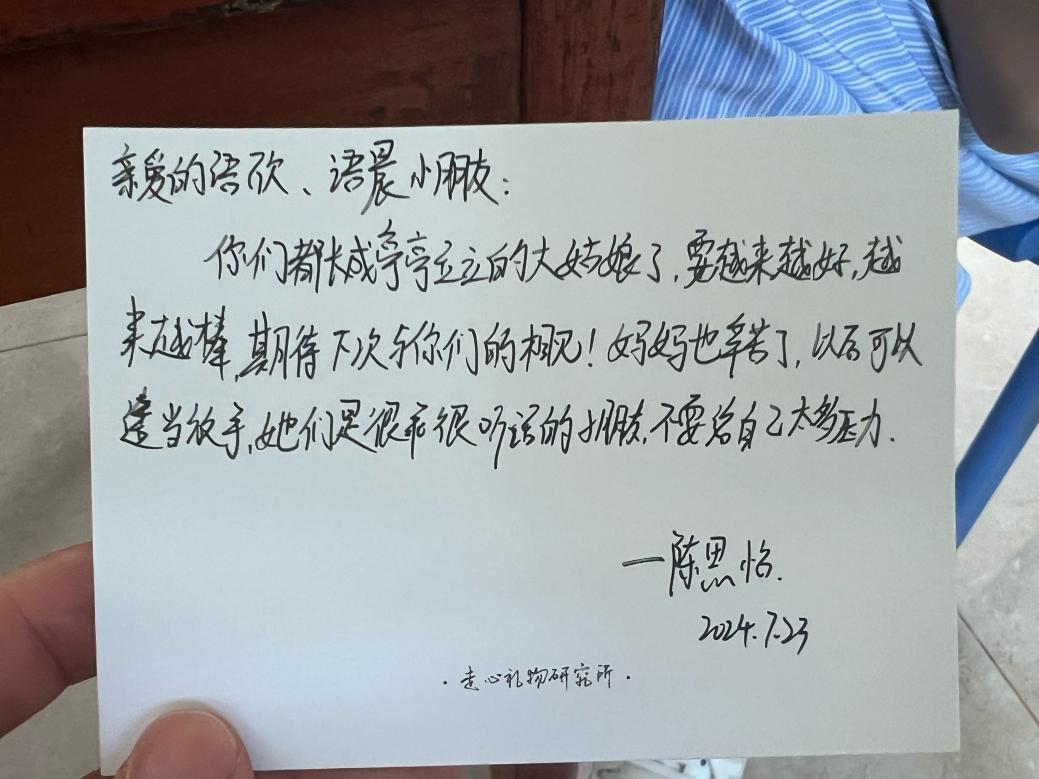 亲爱的语欣、语晨小朋友：
你们都长成亭亭立立的大姑娘了，要越来越好，越
来越棒，期待下次与你们的相见！妈妈也辛苦了，以后可以
适当放手，她们是很乖很听话的小朋友，不要给自己太多压力.
—陈思怡.
2024.7.23
·走心礼物研究所·